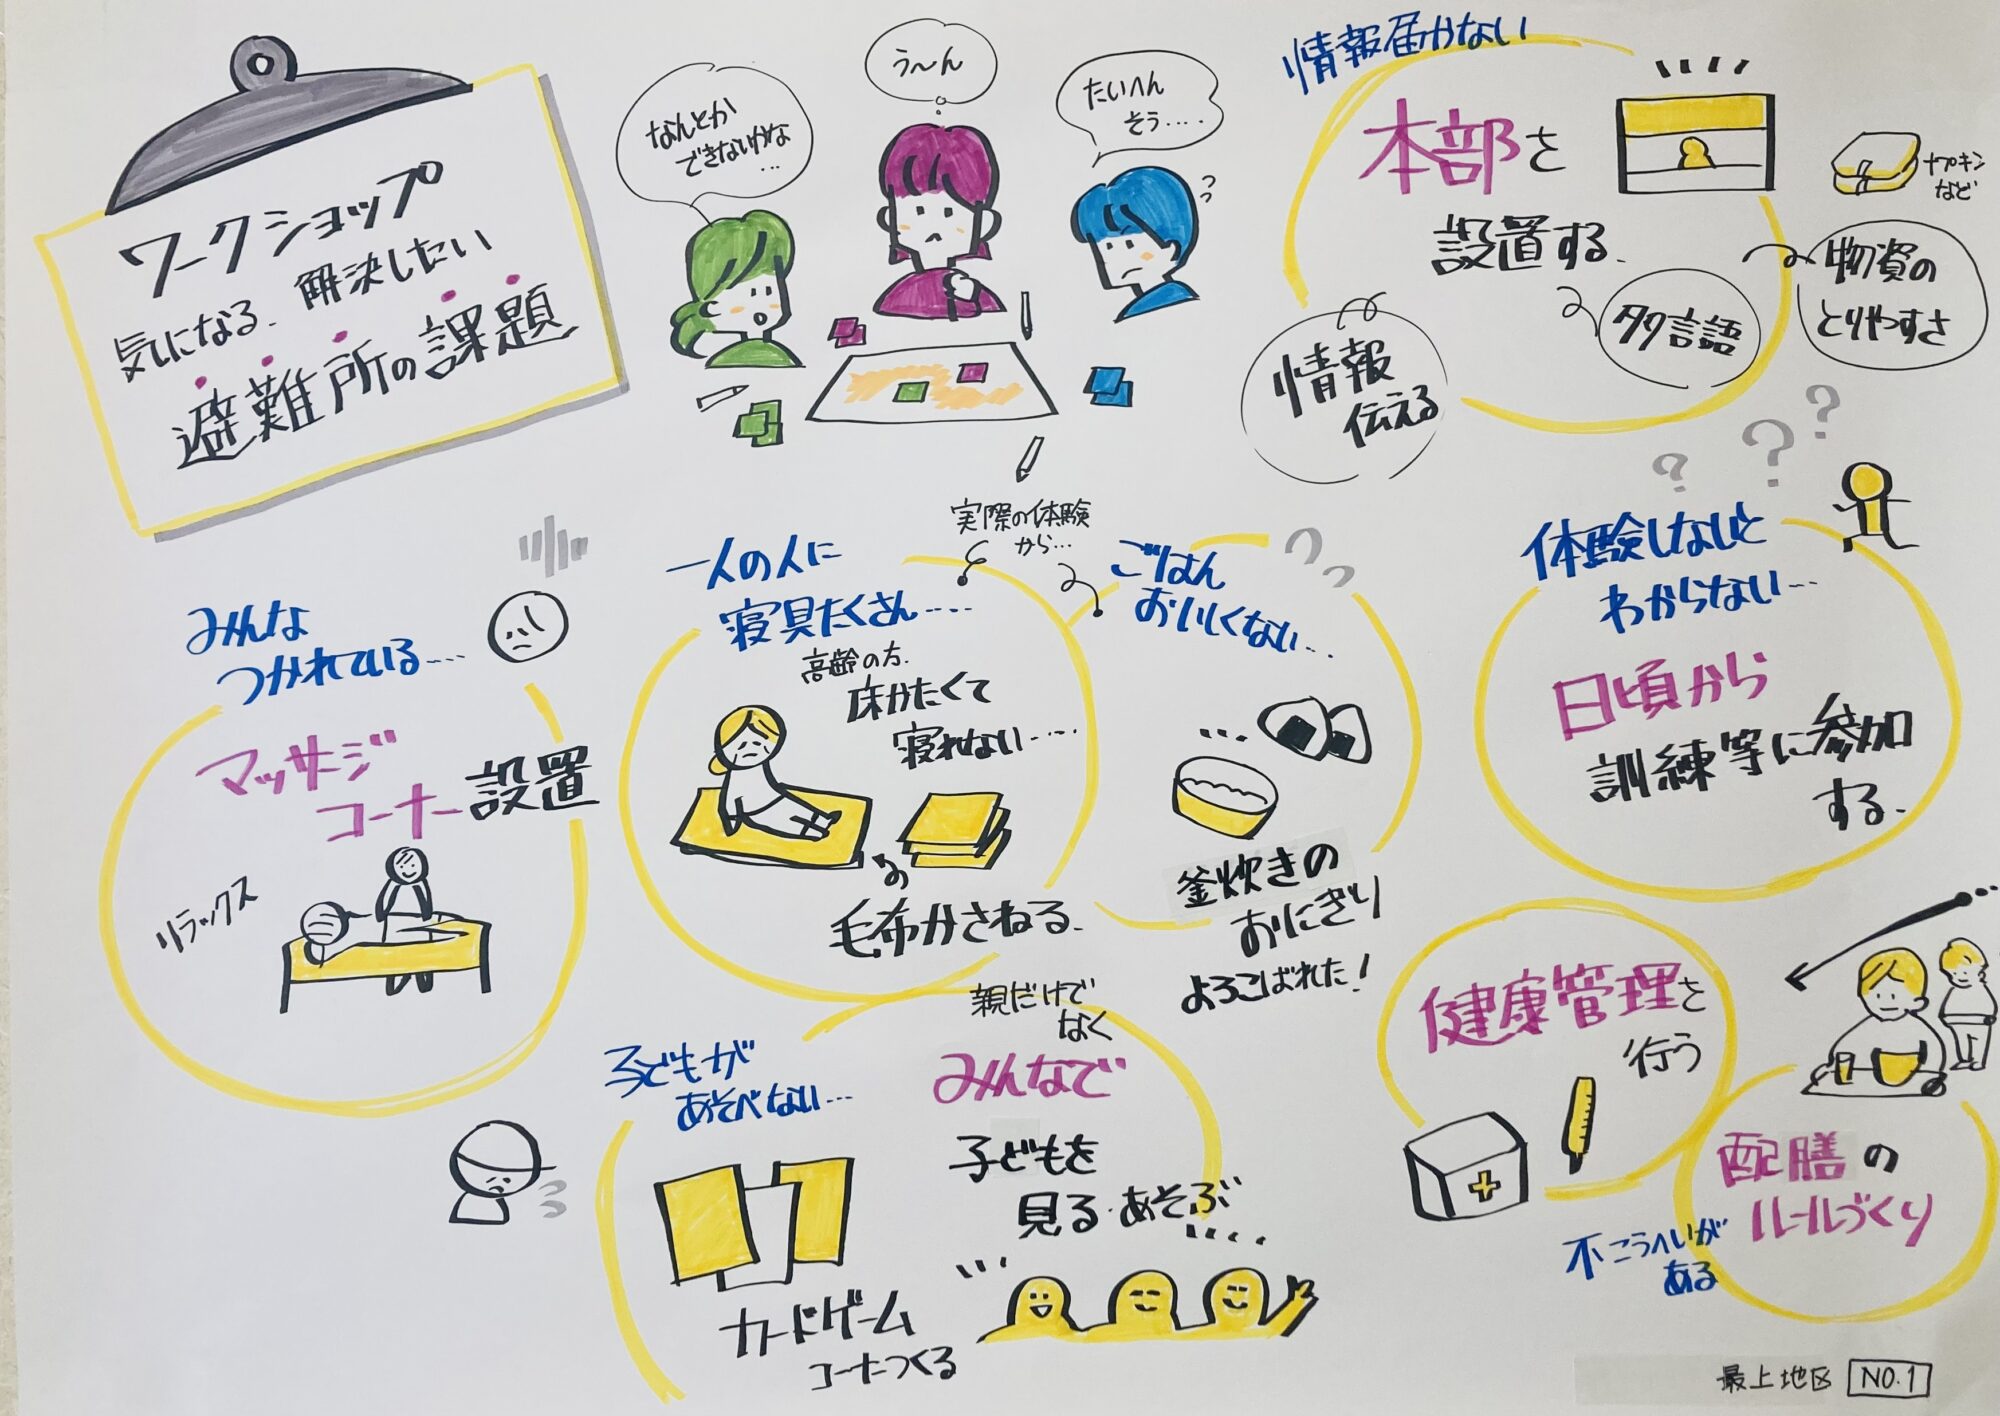 ワークショップ
気になる、解決したい
避難所の課題
なんとか
できないかな
…
う〜ん
たいへん
そう….
情報届かない
本部を
設置する.
ナプキン
など
物資の
とりやすさ
多言語
情報
伝える
実際の体験
から…
みんな
つかれている….
マッサージ
コーナー設置
リラックス
一人の人に
寝具たくさん….
高齢の方.
床かたくて
寝れない….
毛布かさねる.
ごはん
おいしくない…
釜炊きの
おにぎり
よろこばれた!
体験しないと
わからない…
日頃から
訓練等に参加
する.
子どもが
あそべない…
親だけで
なく
みんなで
子どもを
見る・あそぶ
カードゲーム
コーナーつくる
健康管理を
行う
配膳の
ルールづくり
不こうへいが
ある
最上地区 NO.1